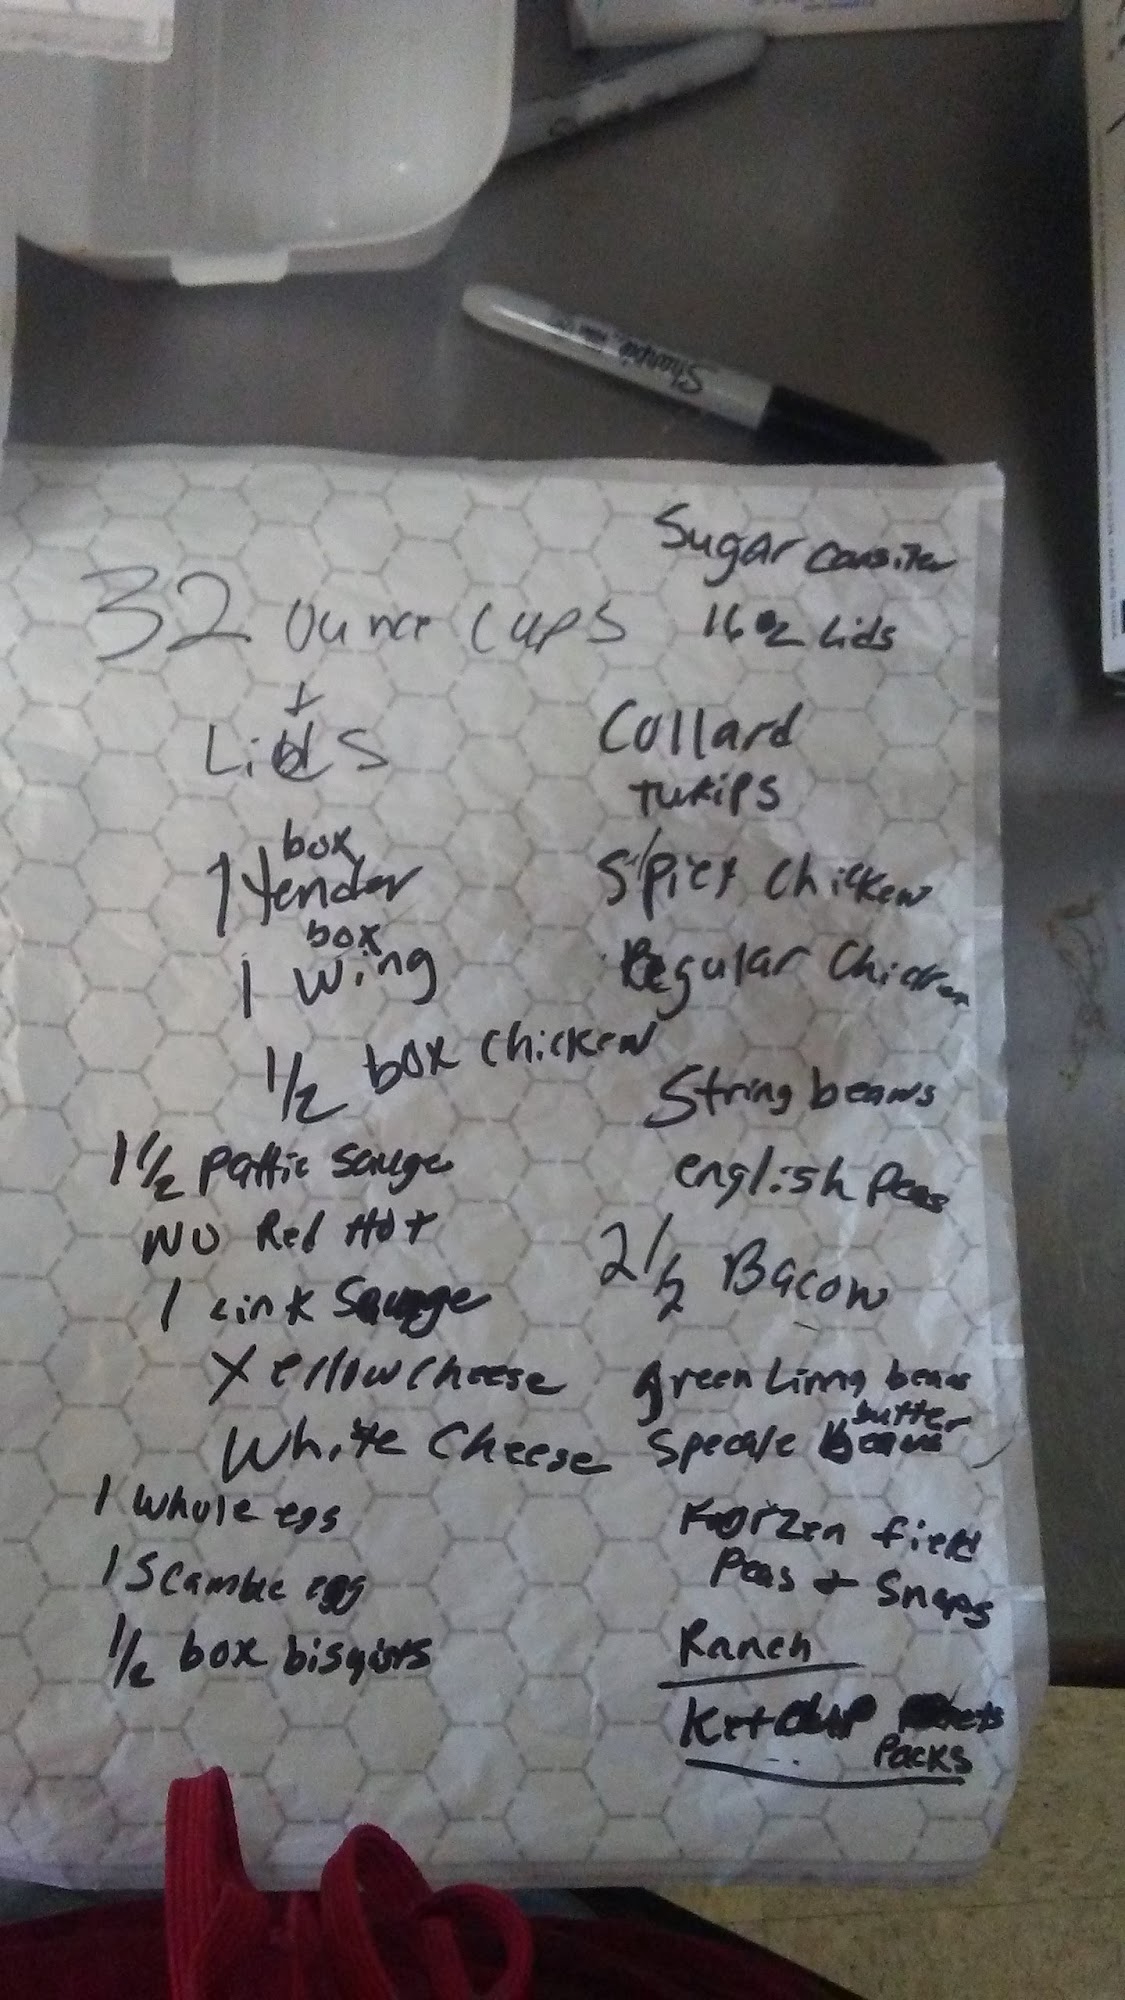 Sharpie
Sugar Consiter
32 ounce cups
16 oz Lids
+
Lids
Collard
turips
box
1 tender
Spicy Chicken
box
1 Wing
Regular Chicken
1/2 box chicken
String beans
1 1/2 pattie sauge
english peas
NO Red Hot
2 1/2 Bacon
1 Link Sauge
Yerllow cheese
green Lima beans
White Cheese
butter
Specale beans
1 whole egg
Frorzen field
Peas + Snaps
1 Scamble egg
1/2 box bisqiurs
Ranch
Ketchup
Packs